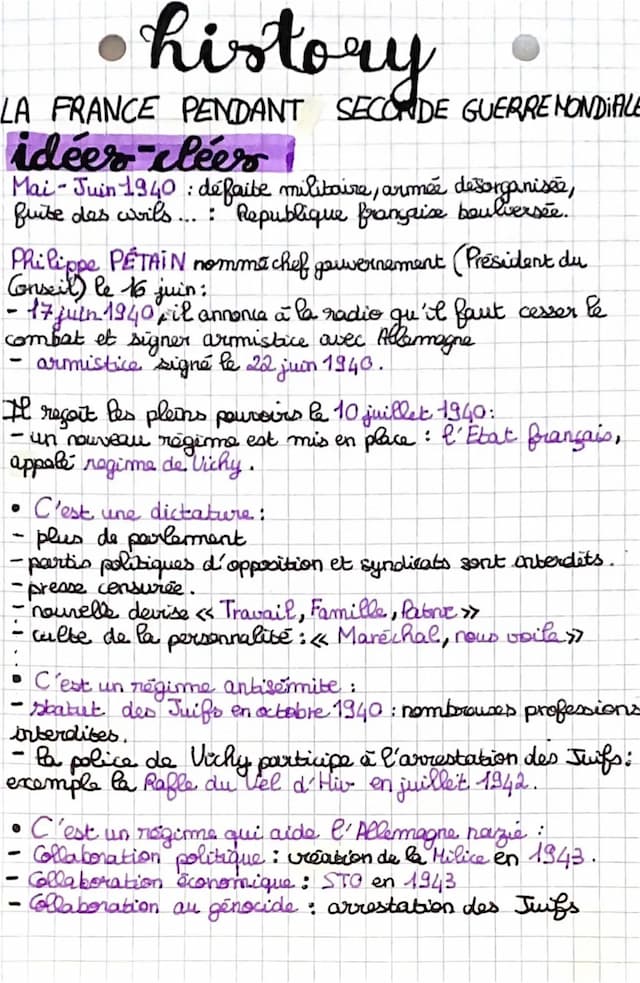 history
LA FRANCE PENDANT SECONDE GUERRE MONDIALE
idées-clées
Mai - Juin 1940 : défaite militaire, armée désorganisée,
fuite des civils ... : République française boulversée.
Philippe PÉTAIN nommé chef gouvernement (Président du
Conseil) le 16 juin :
- 17 juin 1940, il annonce à la radio qu'il faut cesser le
combat et signer armistice avec Allemagne
- armistice signé le 22 juin 1940.
Il reçoit les pleins pouvoirs le 10 juillet 1940 :
- un nouveau régime est mis en place : l'État français,
appelé regime de Vichy.
• C'est une dictature :
- plus de parlement
- partis politiques d'opposition et syndicats sont interdits.
- presse censurée.
- nouvelle devise « Travail, Famille, Patrie »
- culte de la personnalité : « Maréchal, nous voila »
• C'est un régime antisémite :
- statut des Juifs en octobre 1940 : nombreuses professions
interdites.
- la police de Vichy participe à l'arrestation des Juifs :
exemple la Rafle du Vel d'Hiv en juillet 1942.
• C'est un régime qui aide l'Allemagne nazie :
- Collaboration politique : création de la Milice en 1943.
- Collaboration économique : STO en 1943
- Collaboration au génocide : arrestation des Juifs